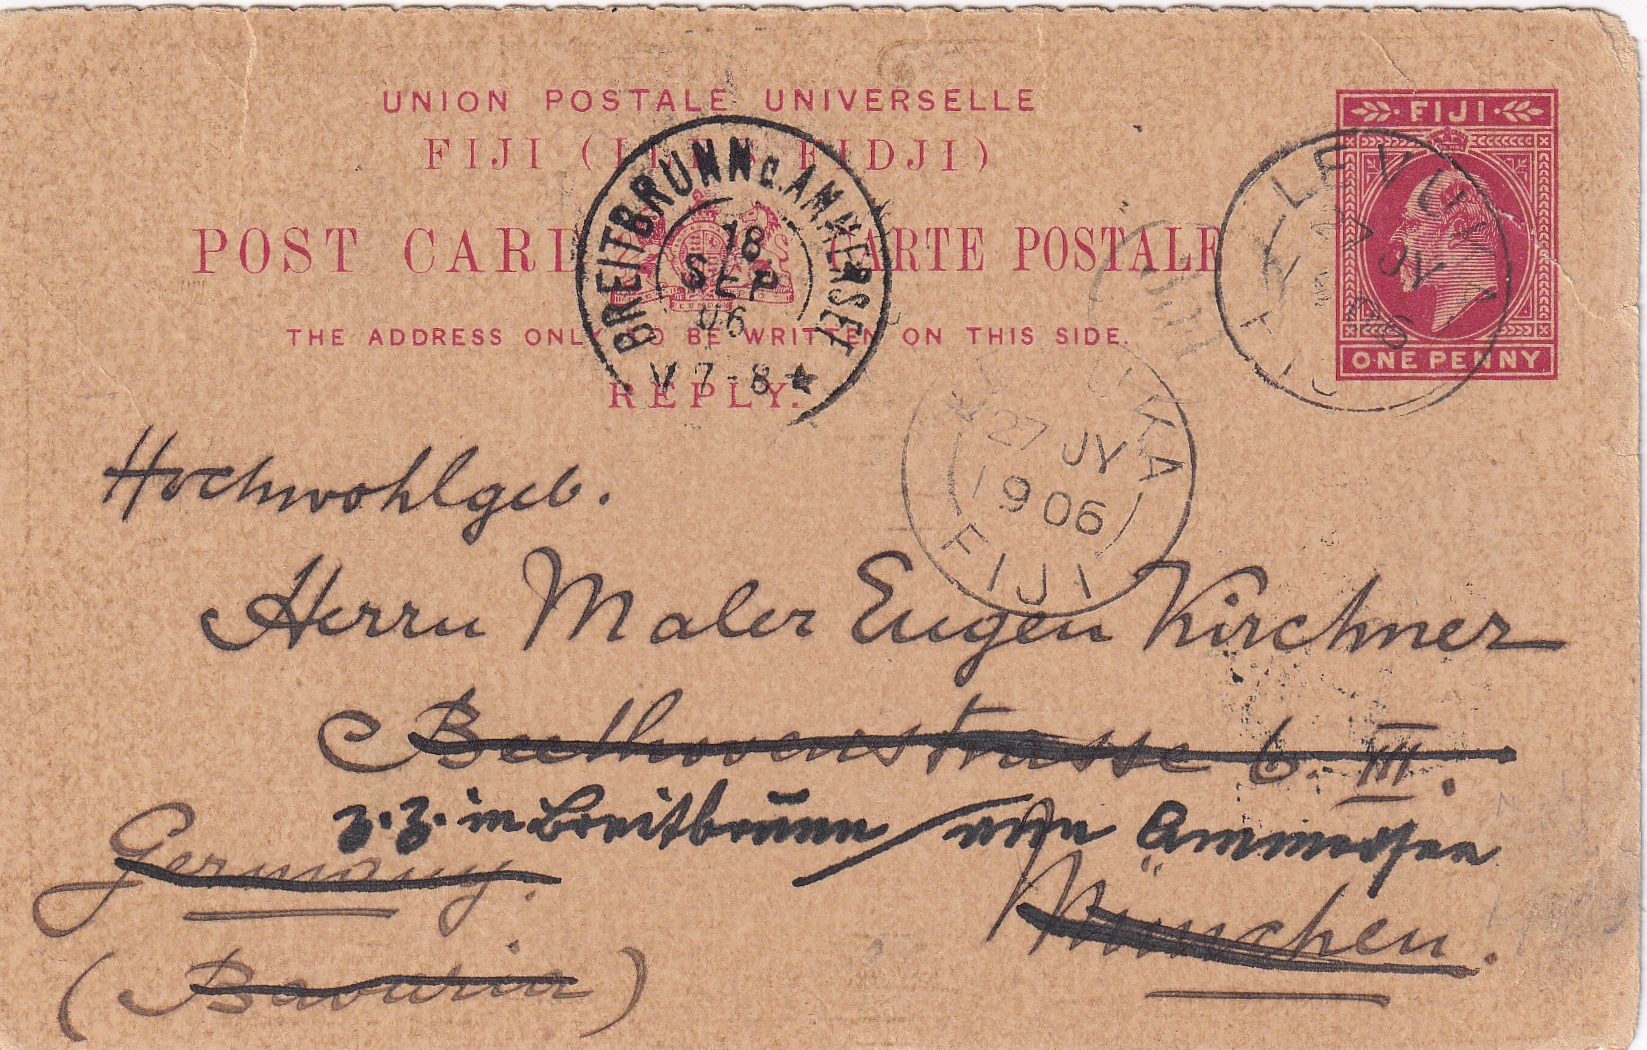 UNION POSTALE UNIVERSELLE
FIJI (ILES FIDJI)
POST CARD CARTE POSTALE
THE ADDRESS ONLY TO BE WRITTEN ON THIS SIDE.
REPLY.
FIJI
ONE PENNY
LEVUKA
27 JY
06
FIJI
BREITBRUNN a. AMMERSEE
18
SEP
06
V 7-8 ★
LEVUKA
27 JY
1906
FIJI
Hochwohlgeb.
Herrn Maler Eugen Kirchner
Beethovenstrasse 6. III.
z. Z. in Breitbrunn / Ammersee
Germany.
München.
(Bavaria)